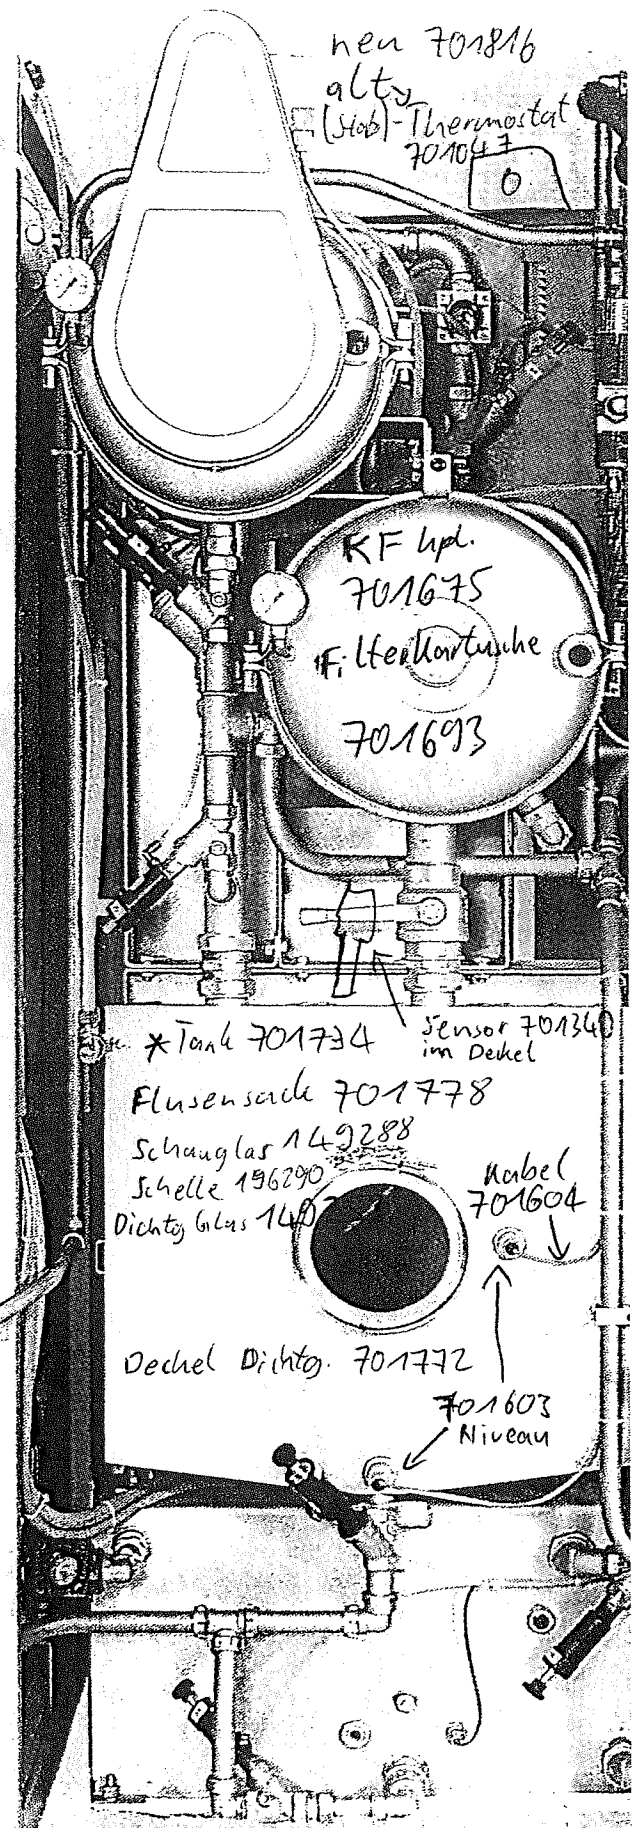 neu 701816
alt
(Stab)-Thermostat
701047
0
KF kpl.
701675
Filterkartusche
701693
*Tank 701734
Sensor 701340
im Deckel
Flusensack 701778
Schauglas 149288
Schelle 196290
Dichtg Glas
Kabel
701604
Deckel Dichtg. 701772
701603
Niveau